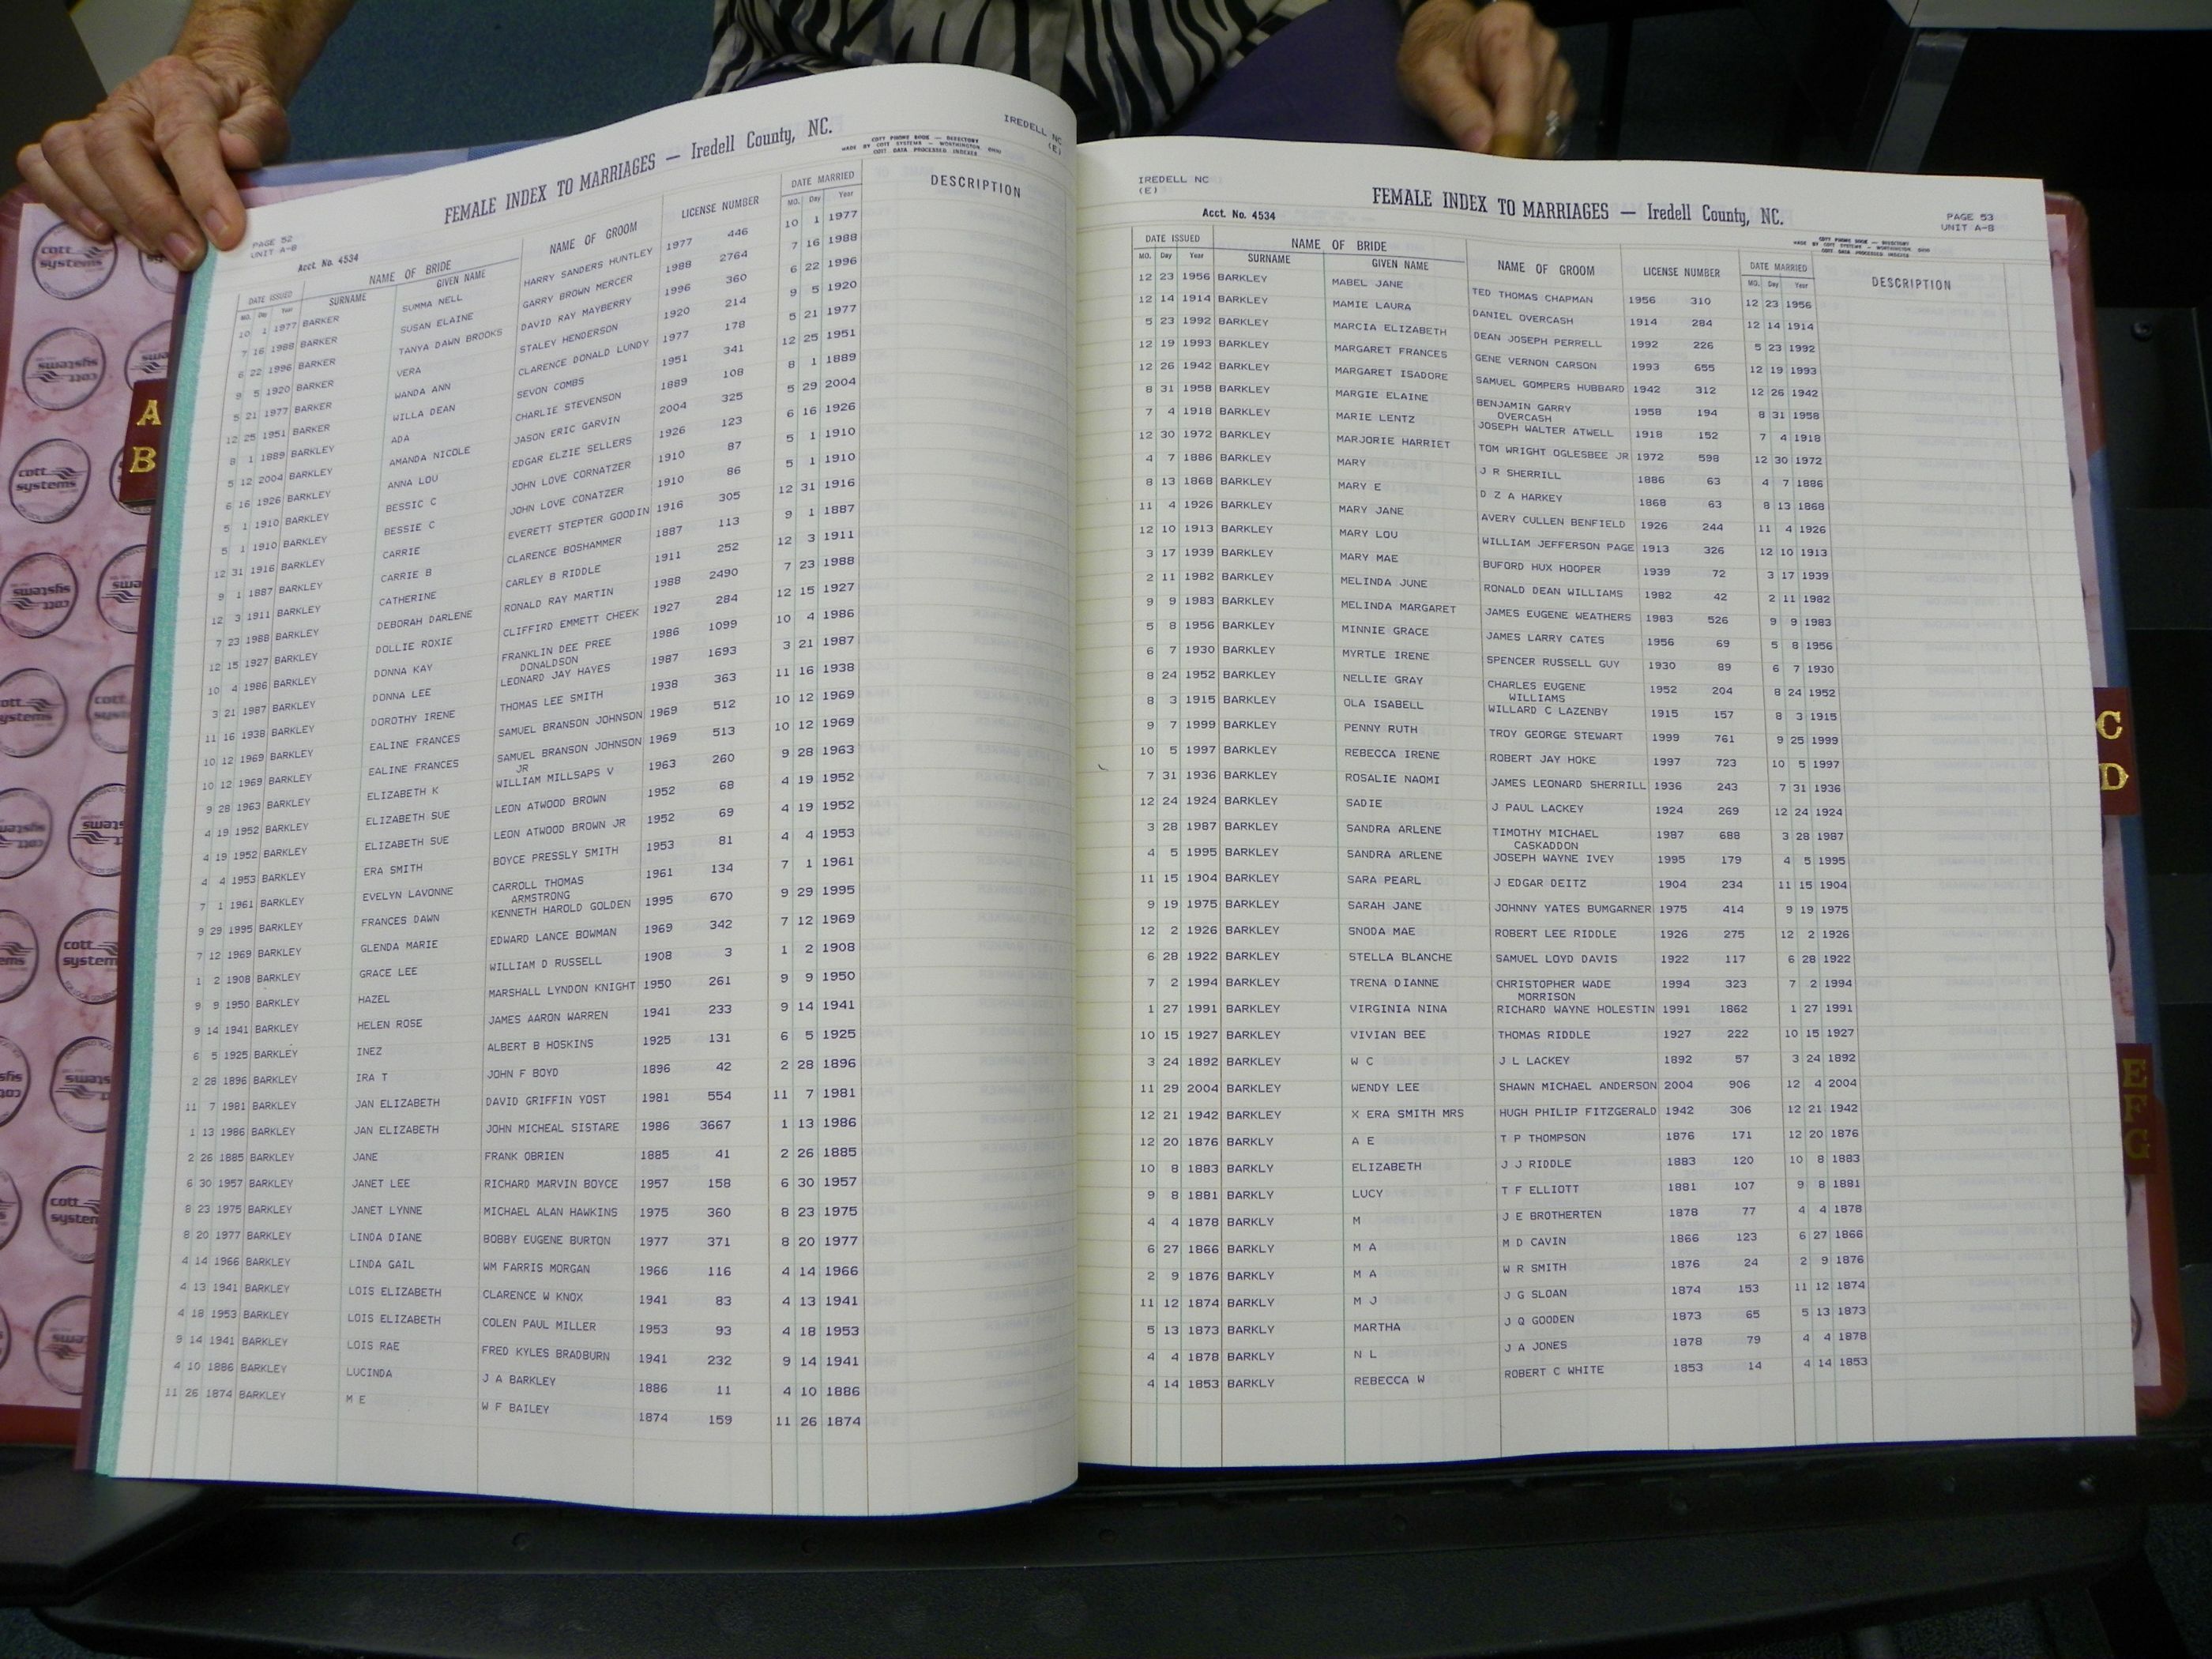 IREDELL NC
(E)
FEMALE INDEX TO MARRIAGES — Iredell County, NC.
COTT PHOME BOOK — DIRECTORY
MADE BY COTT SYSTEMS — WORTHINGTON, OHIO
COTT DATA PROCESSED INDEXES
PAGE 52
UNIT A-B
Acct. No. 4534
DATE ISSUED NAME OF BRIDE NAME OF GROOM LICENSE NUMBER DATE MARRIED DESCRIPTION
MO. Day Year SURNAME GIVEN NAME MO. Day Year
10 1 1977 BARKER SUMMA NELL HARRY SANDERS HUNTLEY 1977 446 10 1 1977
7 16 1988 BARKER SUSAN ELAINE GARRY BROWN MERCER 1988 2764 7 16 1988
6 22 1996 BARKER TANYA DAWN BROOKS DAVID RAY MAYBERRY 1996 360 6 22 1996
9 5 1920 BARKER VERA STALEY HENDERSON 1920 214 9 5 1920
5 21 1977 BARKER WANDA ANN CLARENCE DONALD LUNDY 1977 178 5 21 1977
12 25 1951 BARKER WILLA DEAN SEVON COMBS 1951 341 12 25 1951
8 1 1889 BARKLEY ADA CHARLIE STEVENSON 1889 108 8 1 1889
5 12 2004 BARKLEY AMANDA NICOLE JASON ERIC GARVIN 2004 325 5 29 2004
6 16 1926 BARKLEY ANNA LOU EDGAR ELZIE SELLERS 1926 123 6 16 1926
5 1 1910 BARKLEY BESSIC C JOHN LOVE CORNATZER 1910 87 5 1 1910
5 1 1910 BARKLEY BESSIE C JOHN LOVE CONATZER 1910 86 5 1 1910
12 31 1916 BARKLEY CARRIE EVERETT STEPTER GOODIN 1916 305 12 31 1916
9 1 1887 BARKLEY CARRIE B CLARENCE BOSHAMMER 1887 113 9 1 1887
12 3 1911 BARKLEY CATHERINE CARLEY B RIDDLE 1911 252 12 3 1911
7 23 1988 BARKLEY DEBORAH DARLENE RONALD RAY MARTIN 1988 2490 7 23 1988
12 15 1927 BARKLEY DOLLIE ROXIE CLIFFIRD EMMETT CHEEK 1927 284 12 15 1927
10 4 1986 BARKLEY DONNA KAY FRANKLIN DEE PREE 1986 1099 10 4 1986
DONALDSON
3 21 1987 BARKLEY DONNA LEE LEONARD JAY HAYES 1987 1693 3 21 1987
11 16 1938 BARKLEY DOROTHY IRENE THOMAS LEE SMITH 1938 363 11 16 1938
10 12 1969 BARKLEY EALINE FRANCES SAMUEL BRANSON JOHNSON 1969 512 10 12 1969
10 12 1969 BARKLEY EALINE FRANCES SAMUEL BRANSON JOHNSON 1969 513 10 12 1969
JR
9 28 1963 BARKLEY ELIZABETH K WILLIAM MILLSAPS V 1963 260 9 28 1963
4 19 1952 BARKLEY ELIZABETH SUE LEON ATWOOD BROWN 1952 68 4 19 1952
4 19 1952 BARKLEY ELIZABETH SUE LEON ATWOOD BROWN JR 1952 69 4 19 1952
4 4 1953 BARKLEY ERA SMITH BOYCE PRESSLY SMITH 1953 81 4 4 1953
7 1 1961 BARKLEY EVELYN LAVONNE CARROLL THOMAS 1961 134 7 1 1961
ARMSTRONG
9 29 1995 BARKLEY FRANCES DAWN KENNETH HAROLD GOLDEN 1995 670 9 29 1995
7 12 1969 BARKLEY GLENDA MARIE EDWARD LANCE BOWMAN 1969 342 7 12 1969
1 2 1908 BARKLEY GRACE LEE WILLIAM D RUSSELL 1908 3 1 2 1908
9 9 1950 BARKLEY HAZEL MARSHALL LYNDON KNIGHT 1950 261 9 9 1950
9 14 1941 BARKLEY HELEN ROSE JAMES AARON WARREN 1941 233 9 14 1941
6 5 1925 BARKLEY INEZ ALBERT B HOSKINS 1925 131 6 5 1925
2 28 1896 BARKLEY IRA T JOHN F BOYD 1896 42 2 28 1896
11 7 1981 BARKLEY JAN ELIZABETH DAVID GRIFFIN YOST 1981 554 11 7 1981
1 13 1986 BARKLEY JAN ELIZABETH JOHN MICHEAL SISTARE 1986 3667 1 13 1986
2 26 1885 BARKLEY JANE FRANK OBRIEN 1885 41 2 26 1885
6 30 1957 BARKLEY JANET LEE RICHARD MARVIN BOYCE 1957 158 6 30 1957
8 23 1975 BARKLEY JANET LYNNE MICHAEL ALAN HAWKINS 1975 360 8 23 1975
8 20 1977 BARKLEY LINDA DIANE BOBBY EUGENE BURTON 1977 371 8 20 1977
4 14 1966 BARKLEY LINDA GAIL WM FARRIS MORGAN 1966 116 4 14 1966
4 13 1941 BARKLEY LOIS ELIZABETH CLARENCE W KNOX 1941 83 4 13 1941
4 18 1953 BARKLEY LOIS ELIZABETH COLEN PAUL MILLER 1953 93 4 18 1953
9 14 1941 BARKLEY LOIS RAE FRED KYLES BRADBURN 1941 232 9 14 1941
4 10 1886 BARKLEY LUCINDA J A BARKLEY 1886 11 4 10 1886
11 26 1874 BARKLEY M E W F BAILEY 1874 159 11 26 1874
IREDELL NC
(E)
FEMALE INDEX TO MARRIAGES — Iredell County, NC.
Acct. No. 4534
PAGE 53
UNIT A-B
COTT PHOME BOOK — DIRECTORY
MADE BY COTT SYSTEMS — WORTHINGTON, OHIO
COTT DATA PROCESSED INDEXES
DATE ISSUED NAME OF BRIDE NAME OF GROOM LICENSE NUMBER DATE MARRIED DESCRIPTION
MO. Day Year SURNAME GIVEN NAME MO. Day Year
12 23 1956 BARKLEY MABEL JANE TED THOMAS CHAPMAN 1956 310 12 23 1956
12 14 1914 BARKLEY MAMIE LAURA DANIEL OVERCASH 1914 284 12 14 1914
5 23 1992 BARKLEY MARCIA ELIZABETH DEAN JOSEPH PERRELL 1992 226 5 23 1992
12 19 1993 BARKLEY MARGARET FRANCES GENE VERNON CARSON 1993 655 12 19 1993
12 26 1942 BARKLEY MARGARET ISADORE SAMUEL GOMPERS HUBBARD 1942 312 12 26 1942
8 31 1958 BARKLEY MARGIE ELAINE BENJAMIN GARRY 1958 194 8 31 1958
OVERCASH
7 4 1918 BARKLEY MARIE LENTZ JOSEPH WALTER ATWELL 1918 152 7 4 1918
12 30 1972 BARKLEY MARJORIE HARRIET TOM WRIGHT OGLESBEE JR 1972 598 12 30 1972
4 7 1886 BARKLEY MARY J R SHERRILL 1886 63 4 7 1886
8 13 1868 BARKLEY MARY E D Z A HARKEY 1868 63 8 13 1868
11 4 1926 BARKLEY MARY JANE AVERY CULLEN BENFIELD 1926 244 11 4 1926
12 10 1913 BARKLEY MARY LOU WILLIAM JEFFERSON PAGE 1913 326 12 10 1913
3 17 1939 BARKLEY MARY MAE BUFORD HUX HOOPER 1939 72 3 17 1939
2 11 1982 BARKLEY MELINDA JUNE RONALD DEAN WILLIAMS 1982 42 2 11 1982
9 9 1983 BARKLEY MELINDA MARGARET JAMES EUGENE WEATHERS 1983 526 9 9 1983
5 8 1956 BARKLEY MINNIE GRACE JAMES LARRY CATES 1956 69 5 8 1956
6 7 1930 BARKLEY MYRTLE IRENE SPENCER RUSSELL GUY 1930 89 6 7 1930
8 24 1952 BARKLEY NELLIE GRAY CHARLES EUGENE 1952 204 8 24 1952
WILLIAMS
8 3 1915 BARKLEY OLA ISABELL WILLARD C LAZENBY 1915 157 8 3 1915
9 7 1999 BARKLEY PENNY RUTH TROY GEORGE STEWART 1999 761 9 25 1999
10 5 1997 BARKLEY REBECCA IRENE ROBERT JAY HOKE 1997 723 10 5 1997
7 31 1936 BARKLEY ROSALIE NAOMI JAMES LEONARD SHERRILL 1936 243 7 31 1936
12 24 1924 BARKLEY SADIE J PAUL LACKEY 1924 269 12 24 1924
3 28 1987 BARKLEY SANDRA ARLENE TIMOTHY MICHAEL 1987 688 3 28 1987
CASKADDON
4 5 1995 BARKLEY SANDRA ARLENE JOSEPH WAYNE IVEY 1995 179 4 5 1995
11 15 1904 BARKLEY SARA PEARL J EDGAR DEITZ 1904 234 11 15 1904
9 19 1975 BARKLEY SARAH JANE JOHNNY YATES BUMGARNER 1975 414 9 19 1975
12 2 1926 BARKLEY SNODA MAE ROBERT LEE RIDDLE 1926 275 12 2 1926
6 28 1922 BARKLEY STELLA BLANCHE SAMUEL LOYD DAVIS 1922 117 6 28 1922
7 2 1994 BARKLEY TRENA DIANNE CHRISTOPHER WADE 1994 323 7 2 1994
MORRISON
1 27 1991 BARKLEY VIRGINIA NINA RICHARD WAYNE HOLESTIN 1991 1862 1 27 1991
10 15 1927 BARKLEY VIVIAN BEE THOMAS RIDDLE 1927 222 10 15 1927
3 24 1892 BARKLEY W C J L LACKEY 1892 57 3 24 1892
11 29 2004 BARKLEY WENDY LEE SHAWN MICHAEL ANDERSON 2004 906 12 4 2004
12 21 1942 BARKLEY X ERA SMITH MRS HUGH PHILIP FITZGERALD 1942 306 12 21 1942
12 20 1876 BARKLY A E T P THOMPSON 1876 171 12 20 1876
10 8 1883 BARKLY ELIZABETH J J RIDDLE 1883 120 10 8 1883
9 8 1881 BARKLY LUCY T F ELLIOTT 1881 107 9 8 1881
4 4 1878 BARKLY M J E BROTHERTEN 1878 77 4 4 1878
6 27 1866 BARKLY M A M D CAVIN 1866 123 6 27 1866
2 9 1876 BARKLY M A W R SMITH 1876 24 2 9 1876
11 12 1874 BARKLY M J J G SLOAN 1874 153 11 12 1874
5 13 1873 BARKLY MARTHA J Q GOODEN 1873 65 5 13 1873
4 4 1878 BARKLY N L J A JONES 1878 79 4 4 1878
4 14 1853 BARKLY REBECCA W ROBERT C WHITE 1853 14 4 14 1853
A
B
C
D
E
F
G
cott
systems